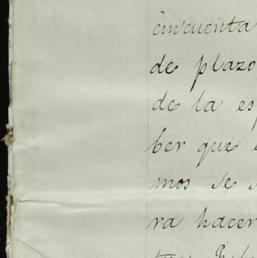 cincuenta
de plazo
de la es
ber que
mos se
ra hacer